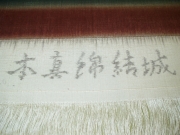 本真綿結城